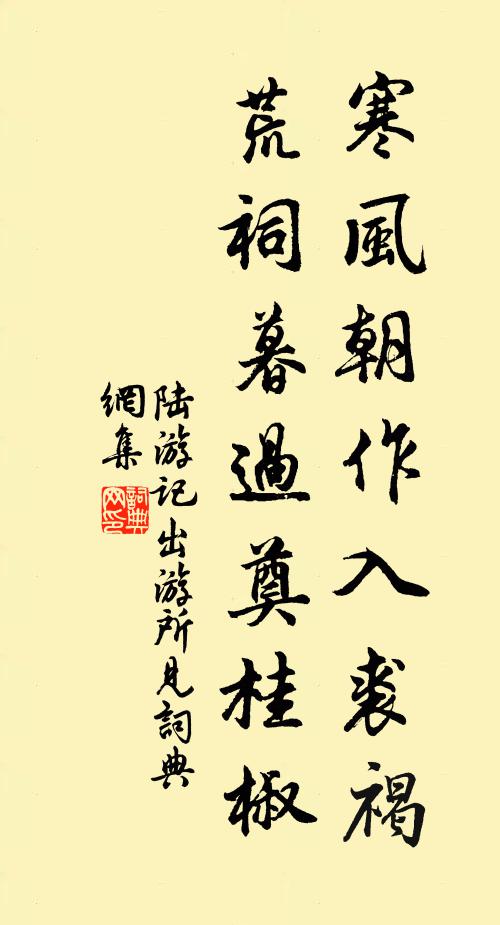 寒風朝作入裘褐
荒祠暮過奠桂椒
陆游记出游所見詞典
網集
詞典
网印